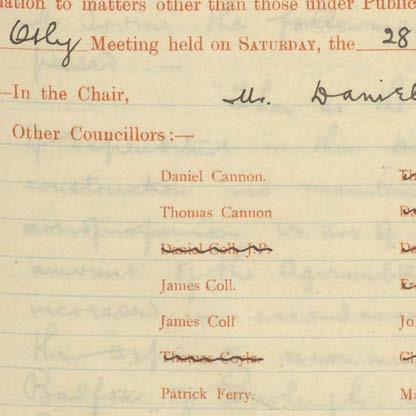 lation to matters other than those under Public
Qtly Meeting held on SATURDAY, the 28
—In the Chair, Mr. Daniel
Other Councillors :—
Daniel Cannon.
Thomas Cannon
Daniel Coll, J.P.
James Coll.
James Coll
Jo
Thomas Coyle.
Patrick Ferry.
Ma